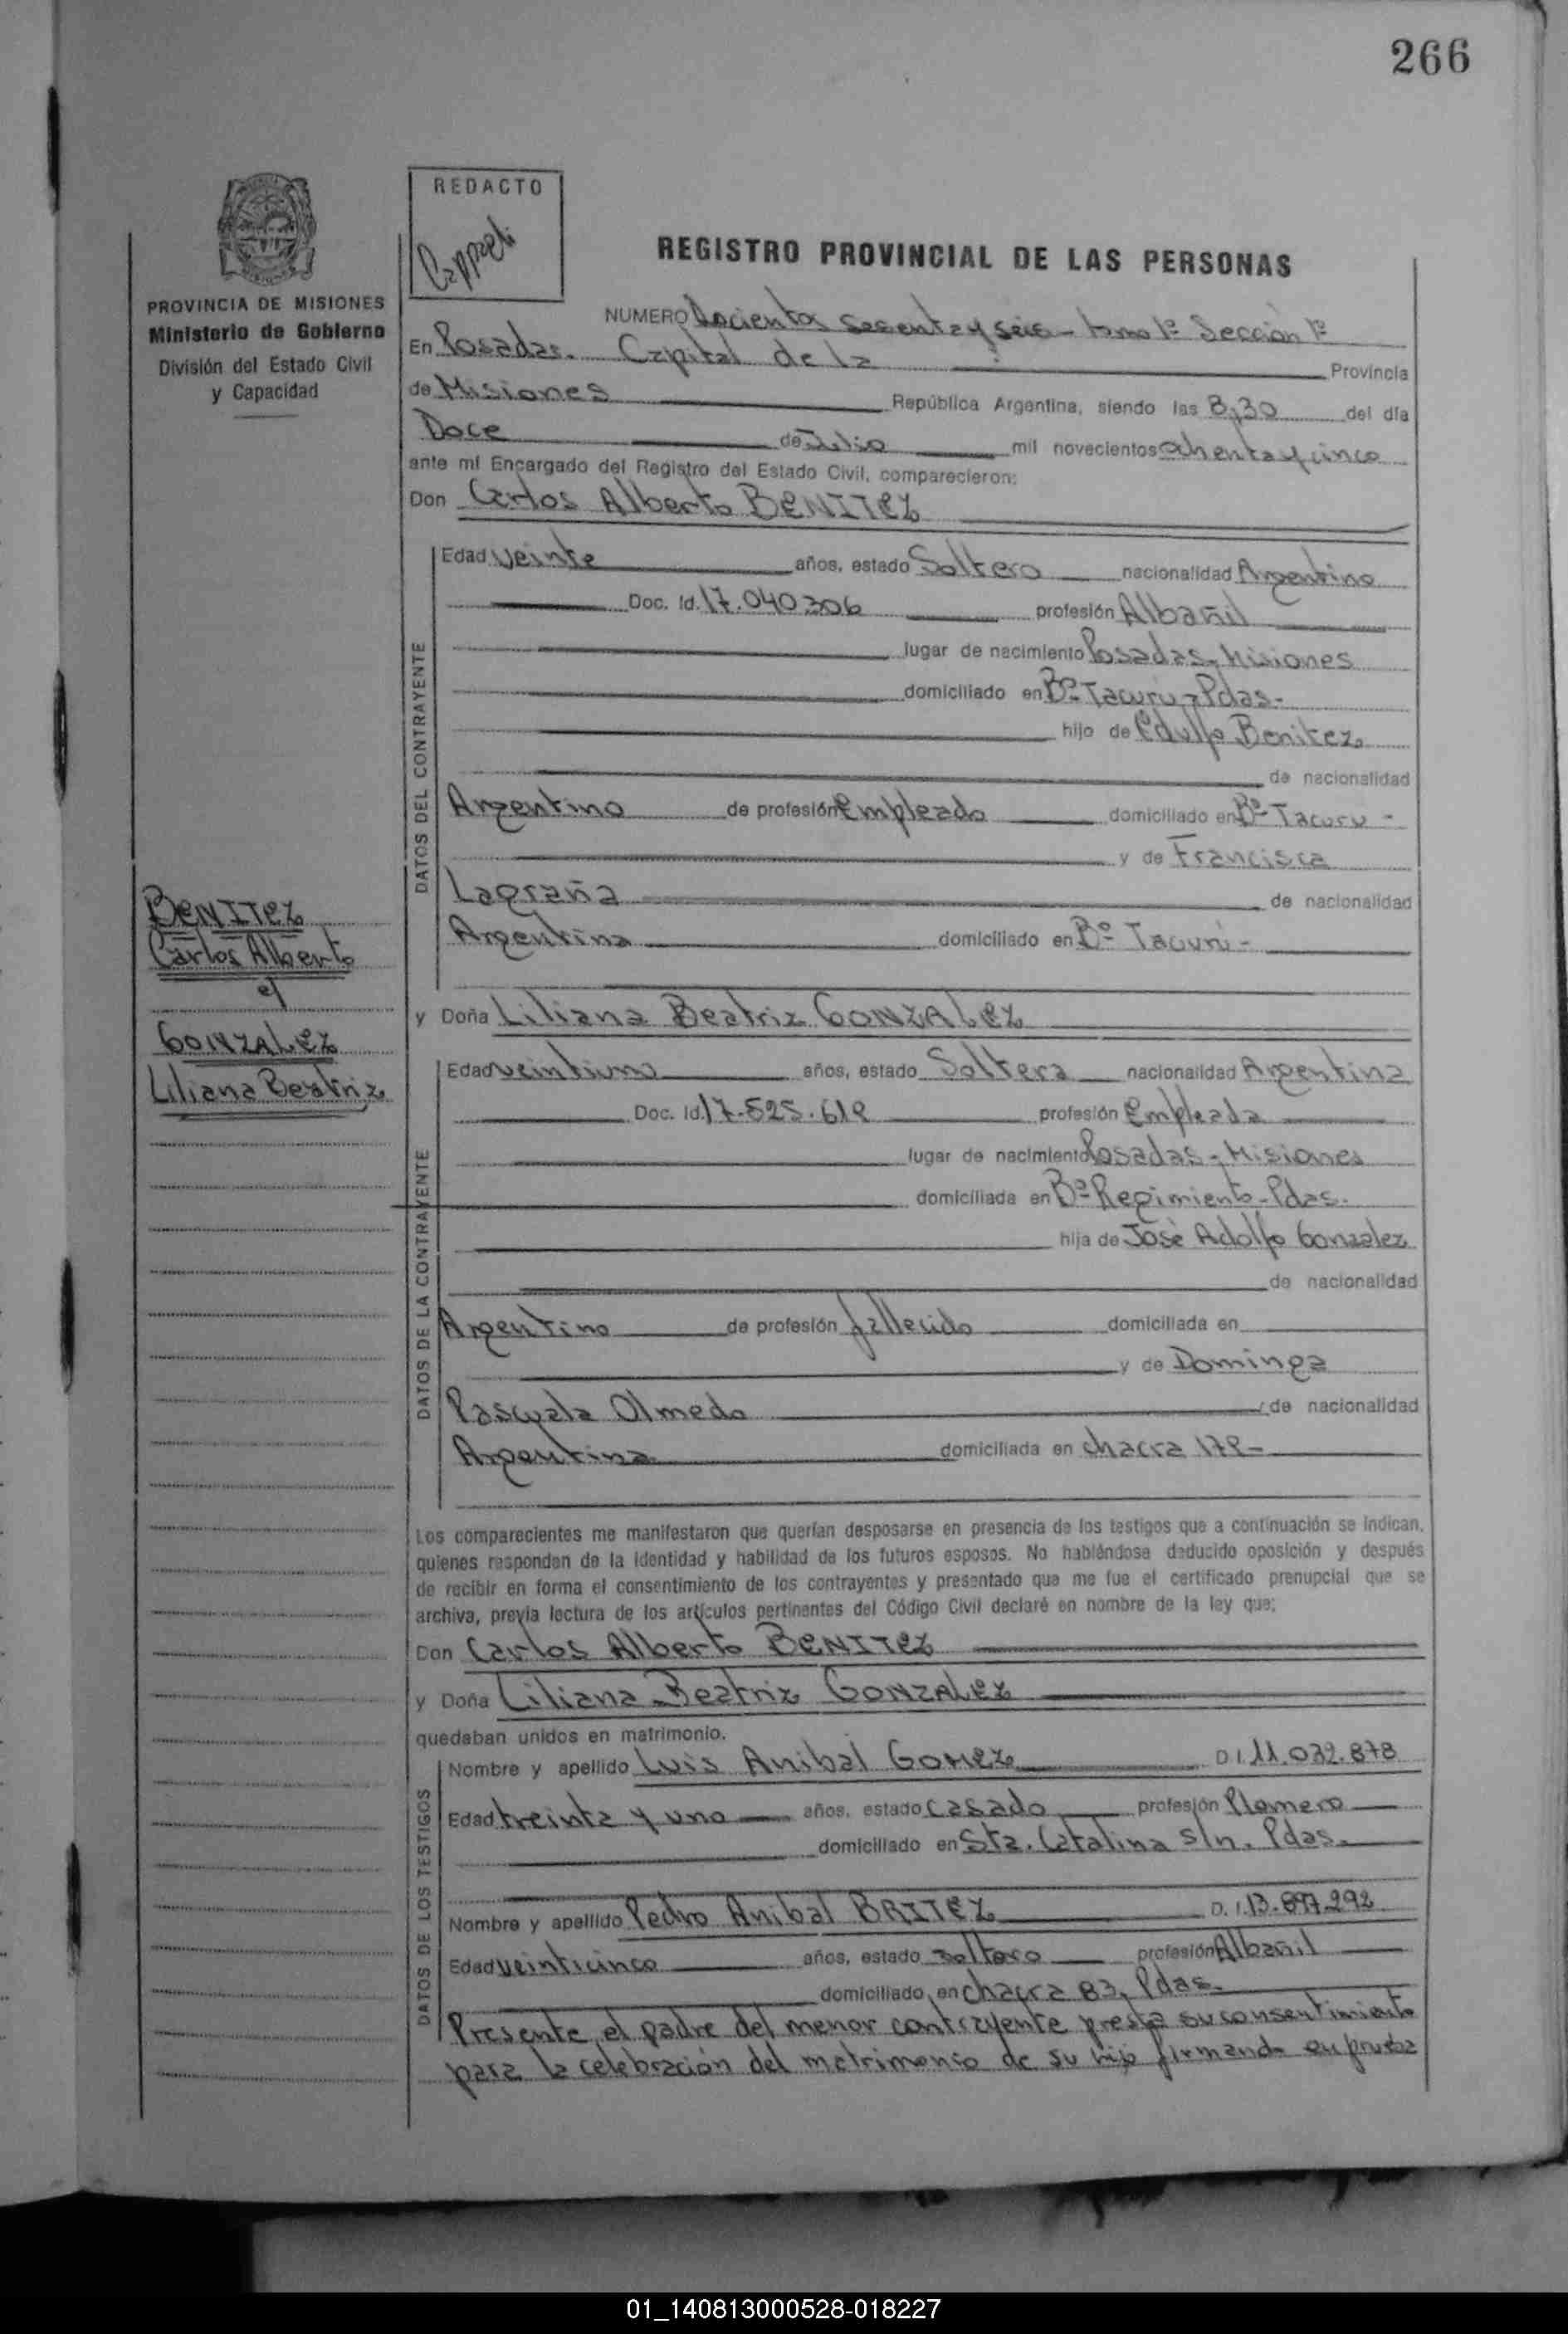 266
REDACTO
REGISTRO PROVINCIAL DE LAS PERSONAS
PROVINCIA DE MISIONES
Ministerio de Gobierno
División del Estado Civil
y Capacidad
NUMERO Docientos sesenta y seis - tomo 1º Sección 1º
En Posadas. Capital de la Provincia
de Misiones República Argentina, siendo las 8,30 del día
Doce de Julio mil novecientos ochenta y cinco
ante mí Encargado del Registro del Estado Civil, comparecieron:
Don Carlos Alberto BENITEZ
DATOS DEL CONTRAYENTE
Edad veinte años, estado Soltero nacionalidad Argentino
Doc. Id. 17.040.306 profesión Albañil
lugar de nacimiento Posadas, Misiones
domiciliado en Bº Tacurú - Pdas.
hijo de Edulfo Benitez
de nacionalidad
Argentino de profesión Empleado domiciliado en Bº Tacuru -
y de Francisca
Lagraña de nacionalidad
Argentina domiciliado en Bº Tacurú -
BENITEZ
Carlos Alberto
c/
GONZALEZ
Liliana Beatriz
y Doña Liliana Beatriz GONZALEZ
DATOS DE LA CONTRAYENTE
Edad veintiuno años, estado Soltera nacionalidad Argentina
Doc. Id. 17.525.619 profesión Empleada
lugar de nacimiento Posadas, Misiones
domiciliada en Bº Regimiento - Pdas.
hija de José Adolfo Gonzalez
de nacionalidad
Argentino de profesión fallecido domiciliada en
y de Dominga
Pascuala Olmedo de nacionalidad
Argentina domiciliada en chacra 179 -
Los comparecientes me manifestaron que querían desposarse en presencia de los testigos que a continuación se indican,
quienes responden de la identidad y habilidad de los futuros esposos. No habiéndose deducido oposición y después
de recibir en forma el consentimiento de los contrayentes y presentado que me fue el certificado prenupcial que se
archiva, previa lectura de los artículos pertinentes del Código Civil declaré en nombre de la ley que:
Don Carlos Alberto BENITEZ
y Doña Liliana Beatriz GONZALEZ
quedaban unidos en matrimonio.
DATOS DE LOS TESTIGOS
Nombre y apellido Luis Anibal GOMEZ D.I. 11.032.878
Edad treinta y uno años, estado casado profesión Plomero
domiciliado en Sta. Catalina s/n. Pdas.
Nombre y apellido Pedro Anibal BRITEZ D. I. 13.897.292
Edad veinticinco años, estado soltero profesión Albañil
domiciliado en chacra 83, Pdas.
Presente el padre del menor contrayente presta su consentimiento
para la celebración del matrimonio de su hijo firmando en prueba
01_140813000528-018227